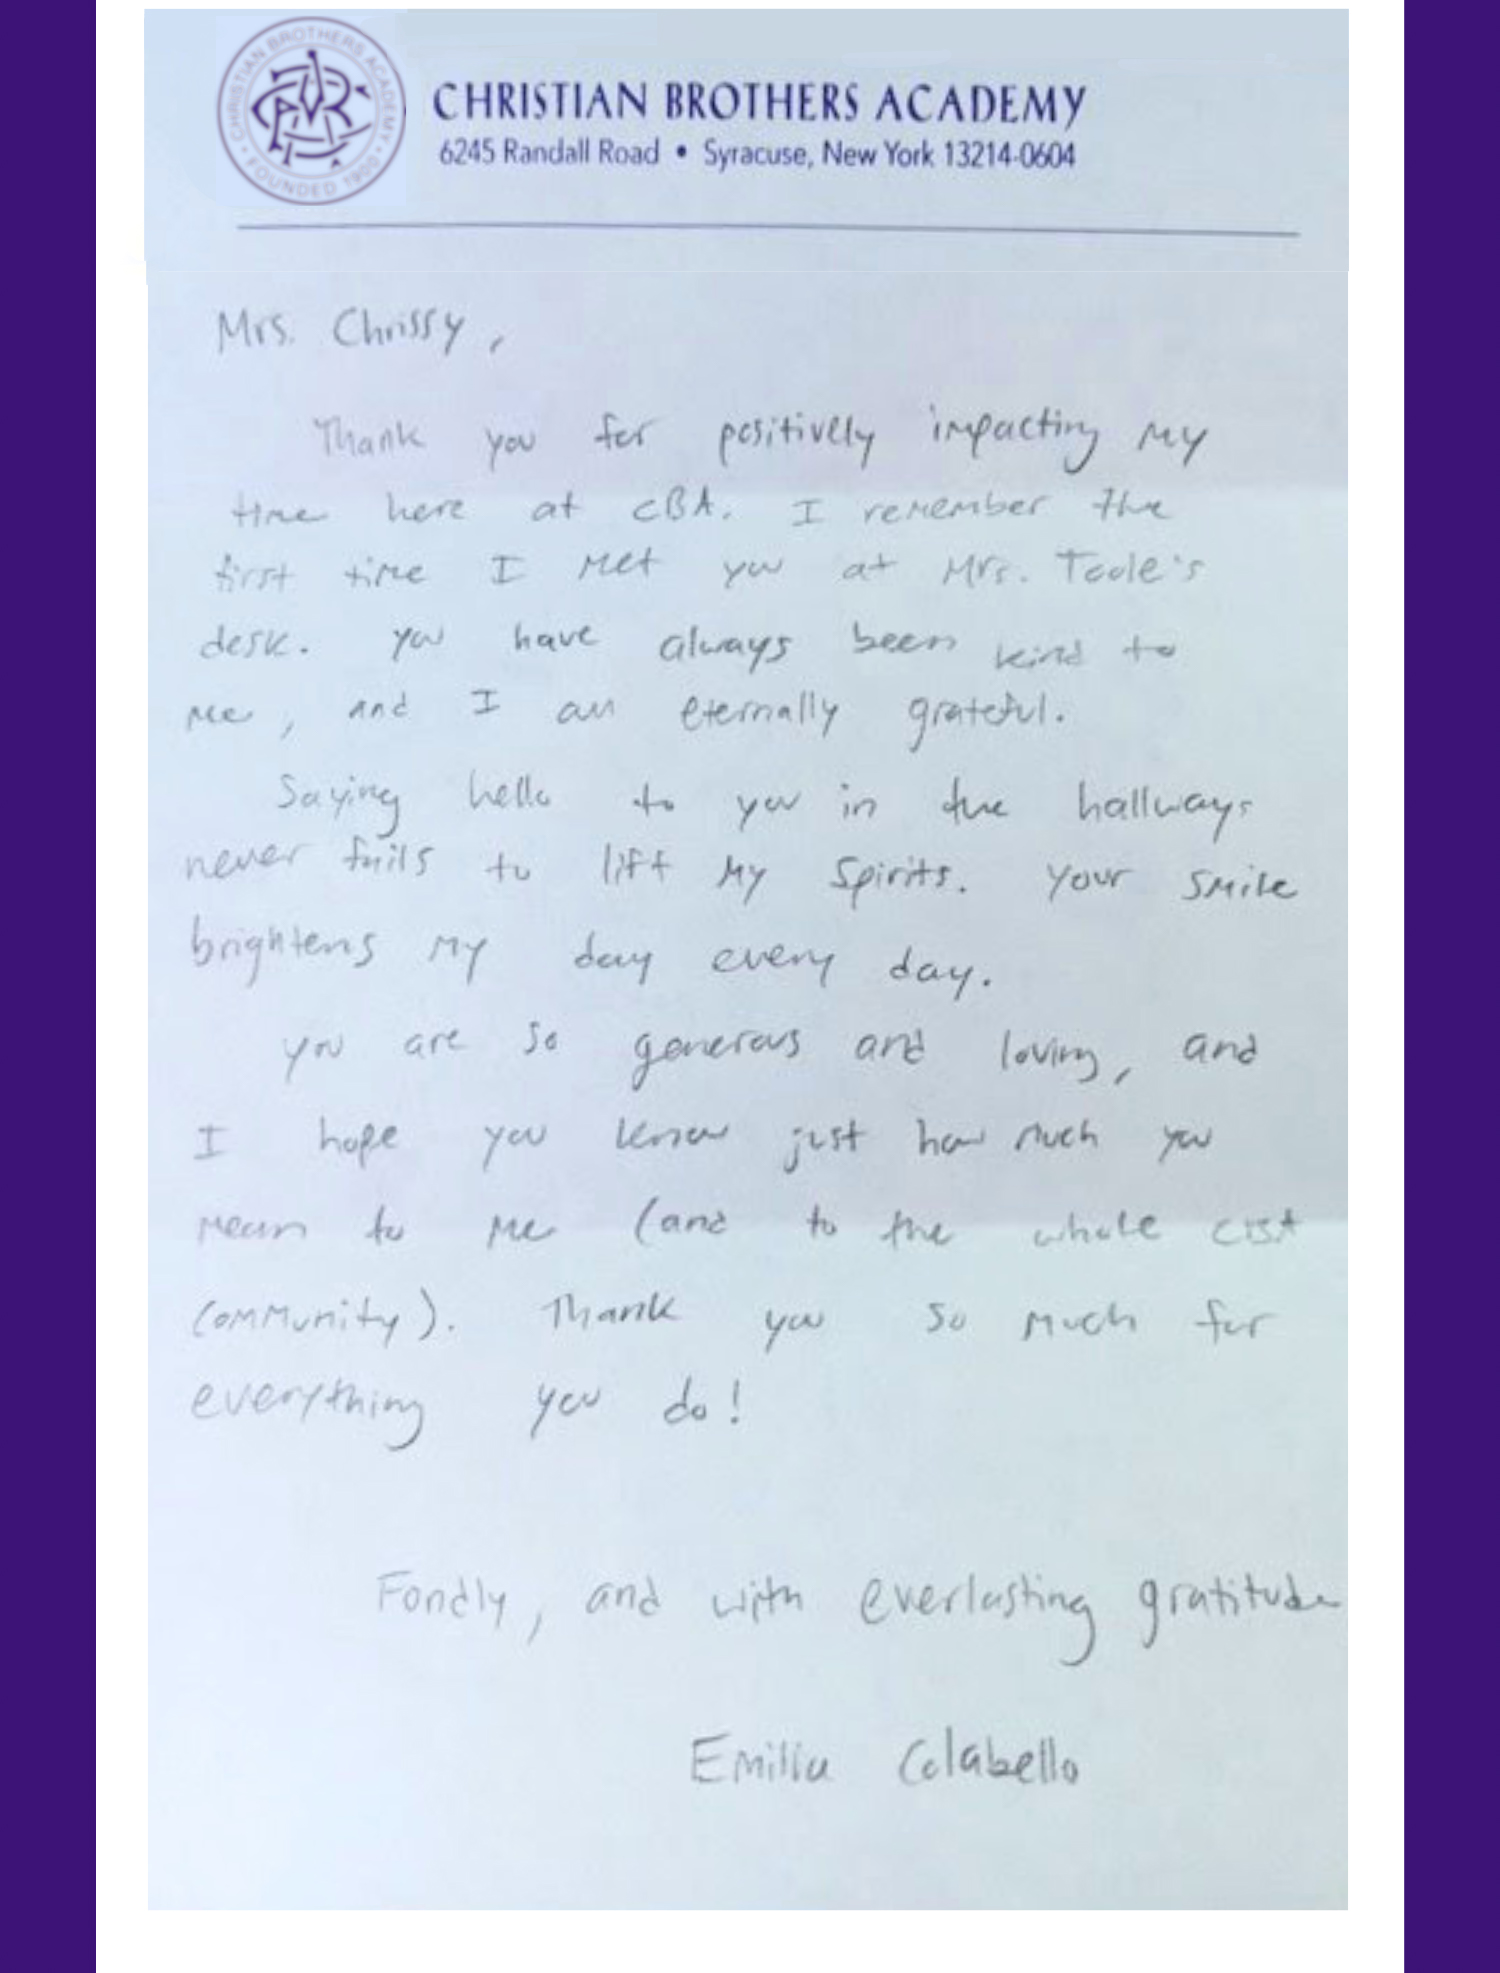 CHRISTIAN BROTHERS ACADEMY
FOUNDED 1900
CHRISTIAN BROTHERS ACADEMY
6245 Randall Road • Syracuse, New York 13214-0604
Mrs. Chrissy,
Thank you for positively impacting my
time here at CBA. I remember the
first time I met you at Mrs. Toole's
desk. You have always been kind to
me, and I am eternally grateful.
Saying hello to you in the hallways
never fails to lift my spirits. Your smile
brightens my day every day.
You are so generous and loving, and
I hope you know just how much you
mean to me (and to the whole CBA
community). Thank you so much for
everything you do!
Fondly, and with everlasting gratitude
Emilia Colabello